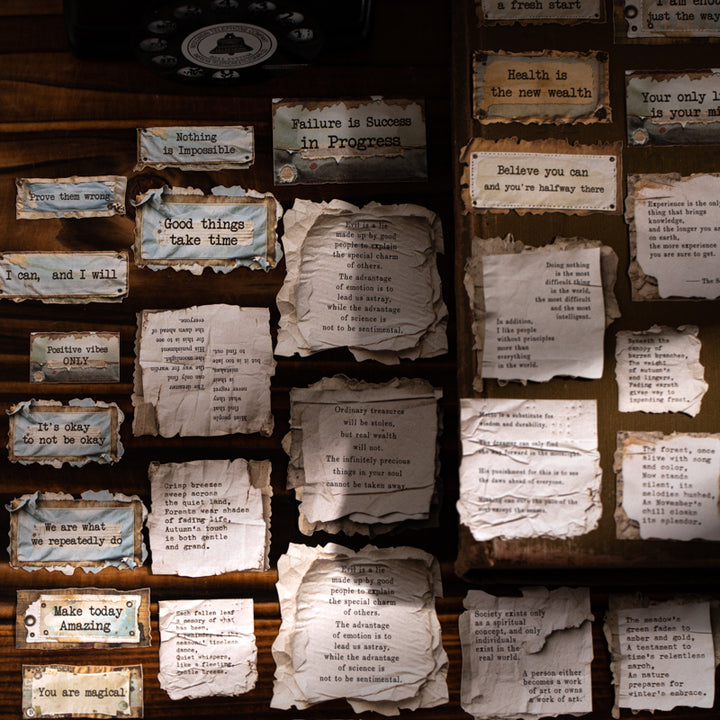 Nothing
is Impossible
Prove them wrong
Good things
take time
I can, and I will
Positive vibes
ONLY
It's okay
to not be okay
We are what
we repeatedly do
Make today
Amazing
You are magical
everyone.
the dawn ahead of
this is to see
His punishment for
the moonlight.
the way forward in
can only find
The dreamer
to find out.
but it is too late
mistakes,
their
regret
Most people
Crisp breezes
sweep across
the quiet land,
Forests wear shades
of fading life,
Autumn's touch
is both gentle
and grand.
Each fallen leaf
a memory of what
has been,
seasonal timeless
dance,
Quiet whispers,
like a fleeting,
gentle breeze.
Failure is Success
in Progress
Evil is a lie
made up by good
people to explain
the special charm
of others.
The advantage
of emotion is to
lead us astray,
while the advantage
of science is
not to be sentimental.
Ordinary treasures
will be stolen,
but real wealth
will not.
The infinitely precious
things in your soul
cannot be taken away.
Evil is a lie
made up by good
people to explain
the special charm
of others.
The advantage
of emotion is to
lead us astray,
while the advantage
of science is
not to be sentimental.
a fresh start
I am enou
just the way
Health is
the new wealth
Your only li
is your mi
Believe you can
and you're halfway there
Experience is the only
thing that brings
knowledge,
and the longer you a
on earth,
the more experience
you are sure to get.
Doing nothing
is the most
difficult thing
in the world,
the most difficult
and the most
intelligent.
In addition,
I like people
without principles
more than
everything
in the world.
Beneath the
canopy of
barren branches,
The weight
of autumn's
end lingers,
Fading warmth
gives way to
impending frost.
is a substitute for
wisdom and durability.
The dreamer can only find
the way forward in the moonlight.
His punishment for this is to see
the dawn ahead of everyone.
Nothing can cure the pain of the
soul except the senses.
The forest, once
alive with song
and color,
Now stands
silent, its
melodies hushed,
As November's
chill cloaks
its splendor.
Society exists only
as a spiritual
concept, and only
individuals
exist in the
real world.
A person either
becomes a work
of art or owns
a work of art.
The meadow's
green fades to
amber and gold,
A testament to
time's relentless
march,
As nature
prepares for
winter's embrace.